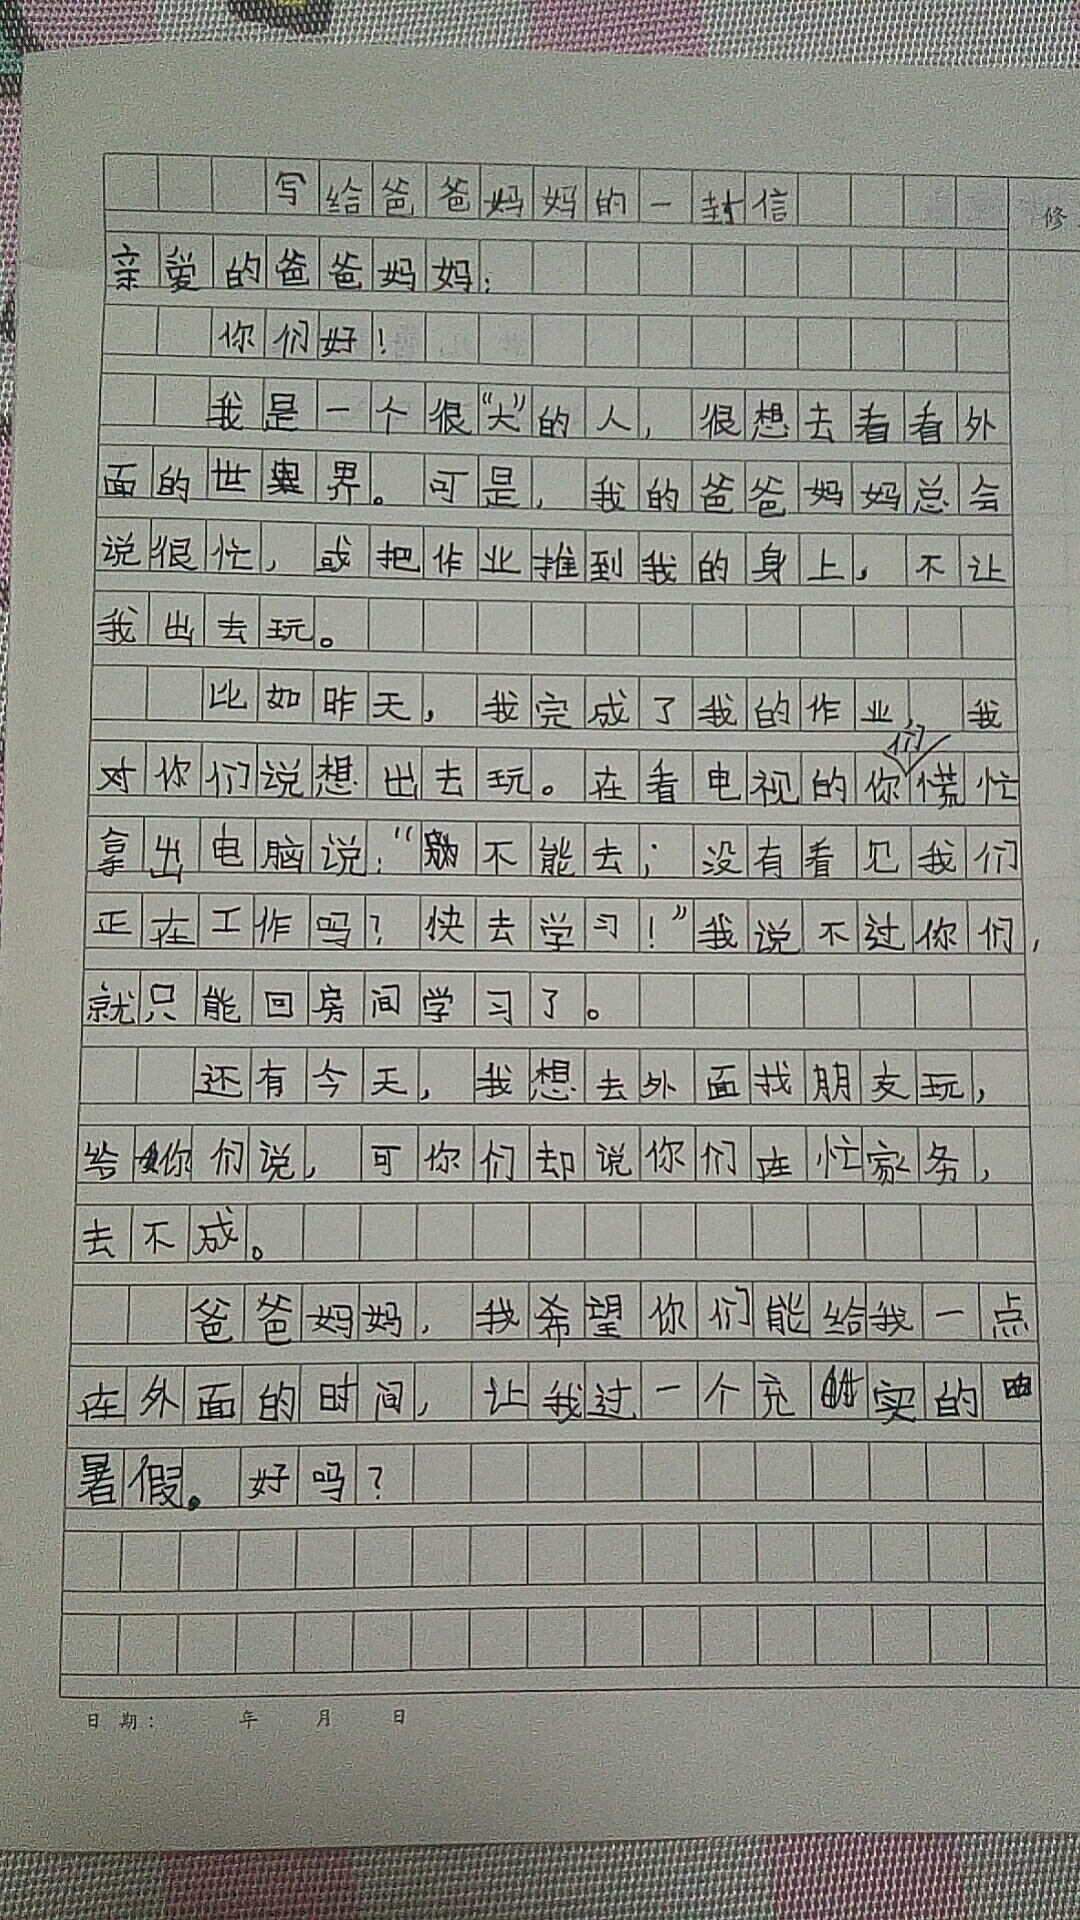 写给爸爸妈妈的一封信
修
亲爱的爸爸妈妈：
你们好！
我是一个很“大”的人，很想去看看外
面的世界。可是，我的爸爸妈妈总会
说很忙，或把作业推到我的身上，不让
我出去玩。
比如昨天，我完成了我的作业，我
对你们说想出去玩。在看电视的你们慌忙
拿出电脑说：“不能去；没有看见我们
正在工作吗？快去学习！”我说不过你们，
就只能回房间学习了。
还有今天，我想去外面找朋友玩，
给你们说，可你们却说你们在忙家务，
去不成。
爸爸妈妈，我希望你们能给我一点
在外面的时间，让我过一个充实的
暑假。好吗？
日期： 年 月 日